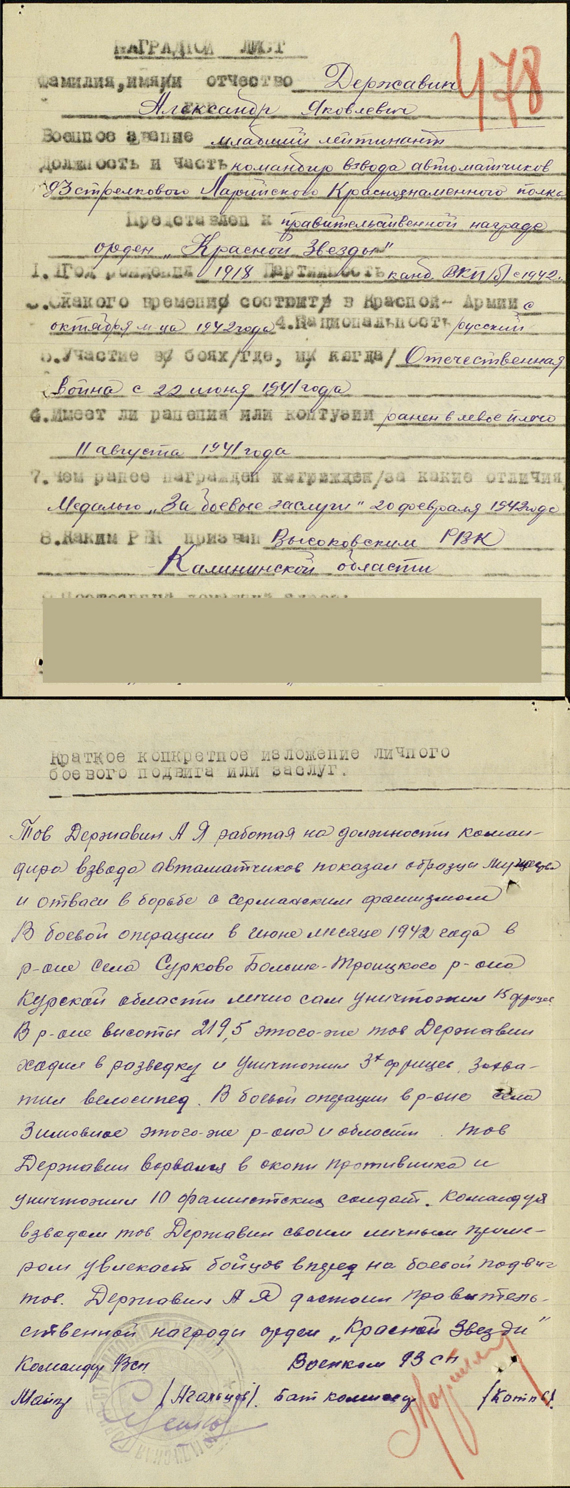 НАГРАДНОЙ ЛИСТ
478
Фамилия, имя и отчество Державин
Александр Яковлевич
Военное звание младший лейтинант
Должность и часть командир взвода автоматчиков
93 стрелкового Краснознаменного полка
Представлен к правительственной награде
орден „Красной Звезды"
1. Год рождения 1918 Партийность канд. ВКП(б) с 1942г
2. С какого времени состоит в Красной Армии с
октября м-ца 1942 года 4. Национальность русский
5. Участие в боях /где, и когда/ Отечественная
война с 22 июня 1941 года
6. Имеет ли ранения или контузии ранен в левое плечо
11 августа 1941 года
7. Чем ранее награжден /за какие отличия
Медалью „За боевые заслуги" 20 февраля 1942 года
8. Каким РВК призван Высоковским РВК
Калининской области
Краткое конкретное изложение личного
боевого подвига или заслуг.
Тов Державин А Я работая на должности коман-
дира взвода автаматчиков показал образцы мужества
и отваги в борьбе с германским фашизмом
В боевой операции в июне месяце 1942 года в
р-оне села Сурково Больше-Троицкого р-она
Курской области лично сам уничтожил 15 фрицев
В р-оне высоты 219,5 этого-же тов Державин
ходил в разведку и уничтожил 3х фрицев, захва-
тил велосипед. В боевой операции в р-оне села
Зимовное этого-же р-она и области тов
Державин ворвался в окоп противника и
уничтожил 10 фашистских солдат. Командуя
взводом тов Державин своим личным приме-
ром увлекает бойцов вперед на боевой подвиг
тов. Державин А Я достоин правитель-
ственной награды орден „Красной Звезды"
Командир 93 сп Военком 93 сп
Майор (Агальцов). Бат комиссар